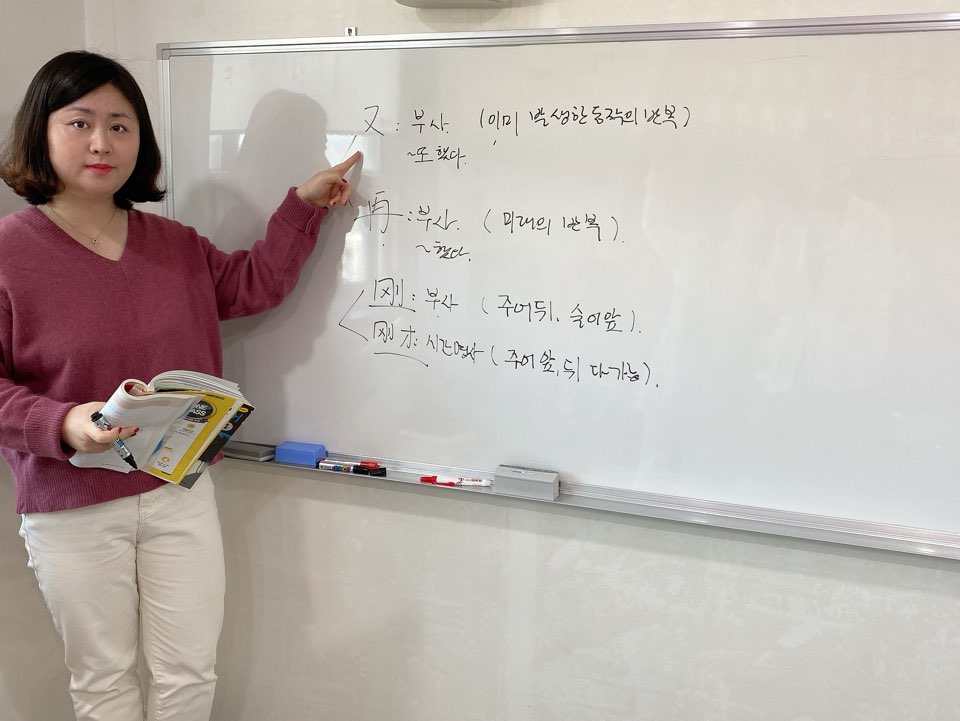 又 : 부사. (이미 발생한 동작의 반복)
~또 했다.
再 : 부사. (미래의 반복).
~할다.
刚 : 부사 (주어뒤, 술어앞).
刚才 : 시간명사 (주어 앞, 뒤 다가능).